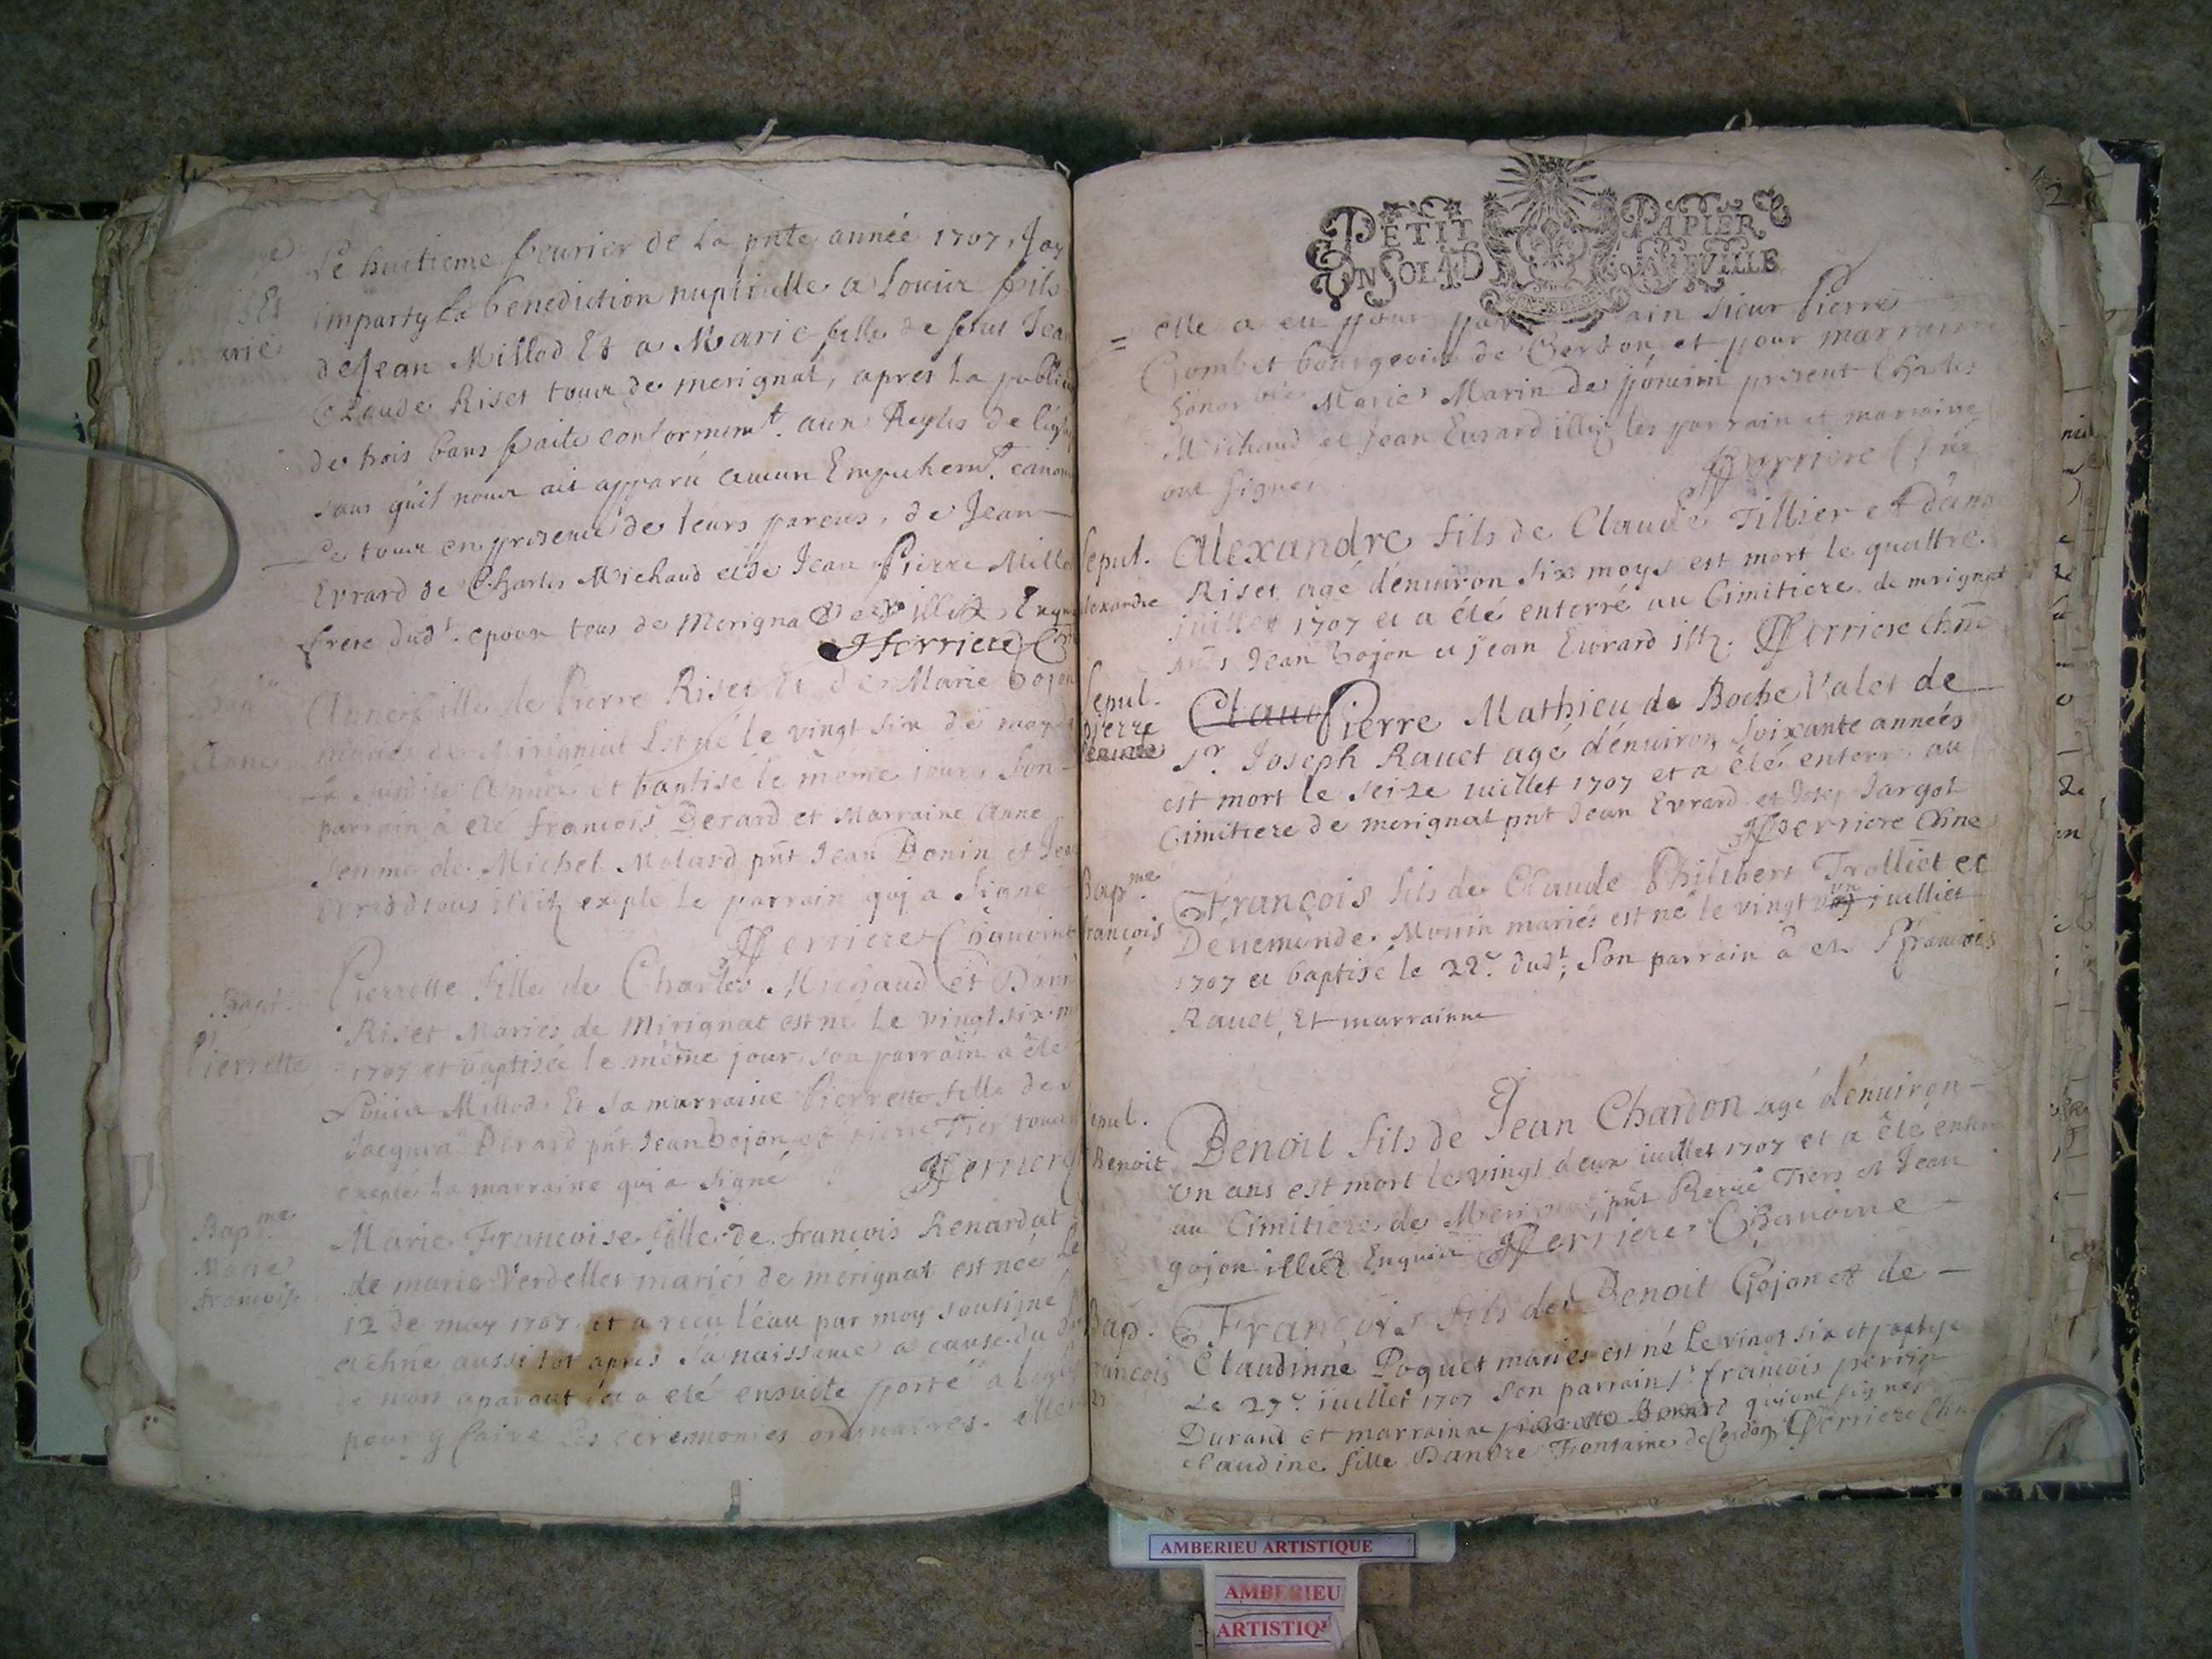 Le huitieme feurier de La pnte année 1707, Jay
imparty La benediction nuptialle a Louis fils
de Jean Millod Et a Marie fille de feus Jean
Claude Riset tous de merignat, apres La publica
de trois bans faite conformem.t aux Regles de l'eglise
sans qu'il nous ait apparu aucun Empechem.t canon
Le tous en presence de leurs parens, de Jean
Evrard de Charles Michaud et de Jean Pierre Millod
frere dud.t epoux tous de Merigna illit Enquis
fferriere
Marie
Anne fille de Pierre Riset Et de Marie Gojon
mariés de Mirigniat Est né le vingt six de
susdite Année et baptisé le meme jour, Son
parrain a eté francois Derard et Marraine Anne
femme de Michel Molard pnt Jean Bonin et Jean
Evrard tous illitz exepte Le parrain qui a Signé
fferriere Chanoine
Anne
Pierrette fille de Charles Michaud et Dam
Riset Mariés de Mirignat est né Le vingt six
1707 et baptisée le même jour, son parrain a été
Louis Millod Et sa marraine Pierrette fille de
Jacques Derard pnt Jean Gojon et pierre Tier tous
exepté La marraine qui a Signé fferriere
Bapt.
Pierrette
Marie Francoise fille de francois Renardat
de marie Verdellet mariés de merignat est née Le
12 de may 1707. et a recu l'éau par moy soussigné
chne aussi tot apres Sa naissance a cause du
de mort aparant et a eté ensuite porté a Legl
pour y faire Les ceremonies ordinaires. elle
Bap.me
Marie
francoise
PETIT PAPIER
UN SOL 4D LA FEUILLE
= elle a eu pour parrain sieur Pierre
Gombet bourgeois de Cerdon et pour marraine
honor Marie Marin de present Charles
Michaud et Jean Eurard illitz les parrain et marraine
ont signes fferriere Chne
Sepul. Alexandre fils de Claude Tillier et d'ann
Alexandre Riset agé d'enuiron six moys est mort le quattre
juillet 1707 et a été enterré au Cimitiere de merignat
Jean Gojon et jean Eurard illz. fferriere Chne
Sepul. Pierre Mathieu de Boche Valet de
pierre
S.r Joseph Rauet agé d'enuiron Soixante années
est mort le Seize juillet 1707 et a été enterré au
Cimitiere de merignat pnt Jean Evrard et Josep Jargot
fferriere Chne
Bap.me François fils de Claude Philibert Trolliet et
françois Denemende Monin mariés est né le vingt un juilliet
1707 et baptisé le 22.e dud.t; Son parrain a eté S.r francois
Rauet, Et marrainne
Sepul. Benoit fils de Jean Chardon agé d'enuiron
Benoit un ans est mort le vingt deux juillet 1707 et a été enterr
au Cimitiere de Merignat pnt Pierre Tiers et Jean
gojon illitz Enquis fferriere Chanoine
Bap. François fils de Benoit Gojon et de
francois Claudinne Poquet mariés est né Le vingt six et baptisé
Le 27.e juillet 1707 Son parrain s.r francois perrin
Durand et marrainne qui ont signés
claudine fille Dandré Fontaine de Cerdon fferriere Chne
AMBERIEU ARTISTIQUE
AMBERIEU
ARTISTIQ